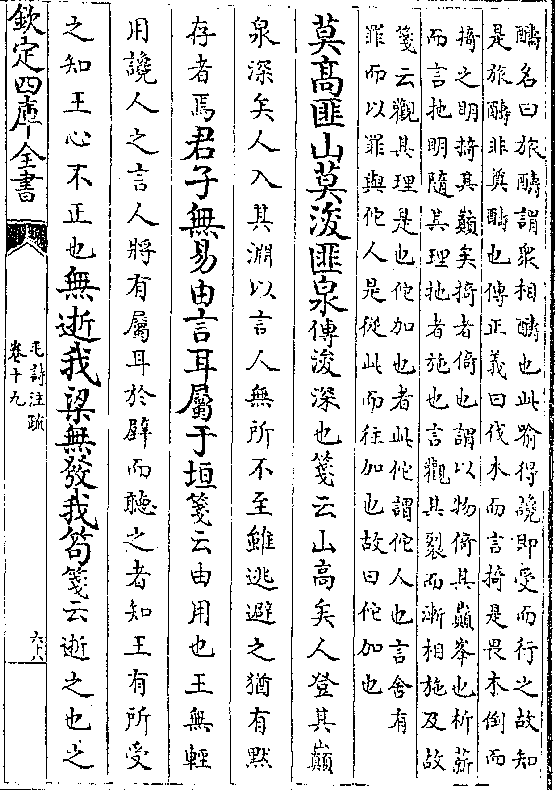 醻名曰旅醻謂衆相醻也此喻得讒即受而行之故知
是旅醻非奠醻也傳正義曰伐木而言掎是畏木倒而
掎之明掎其巔矣掎者倚也謂以物倚其巔峯也析薪
而言扡明隨其理扡者施也言觀其裂而漸相施及故
箋云觀其理是也佗加也者此佗謂佗人也言舍有
罪而以罪與佗人是從此而往加也故曰佗加也
莫髙匪山莫浚匪泉傳浚深也箋云山高矣人登其巔
泉深矣人入其淵以言人無所不至雖逃避之猶有黙
存者焉君子無易由言耳屬于垣箋云由用也王無輕
用讒人之言人將有屬耳於壁而聽之者知王有所受
之知王心不正也無逝我梁無發我笱箋云逝之也之
欽定四庫全書
毛詩注疏
卷十九
六十八